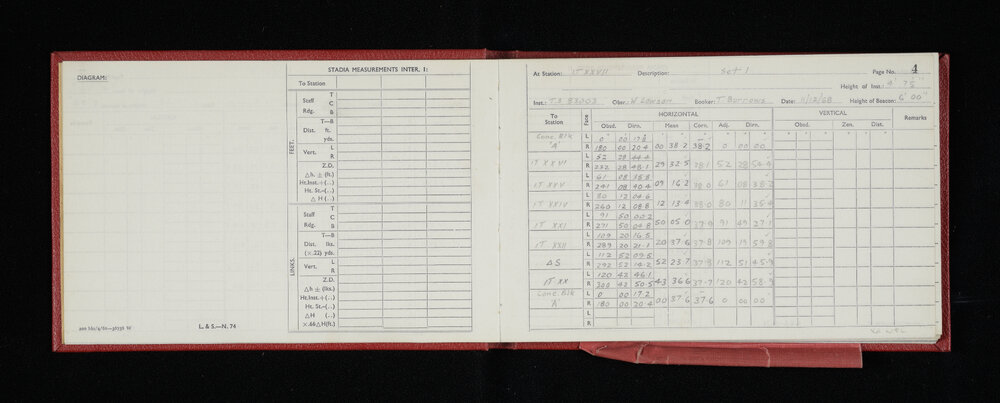 DIAGRAM:
200 bks/4/60—36736 W
L. & S.—N. 74
STADIA MEASUREMENTS INTER. I:
To Station
FEET.
Staff T
C
Rdg. B
T—B
Dist. ft.
yds.
L
Vert. R
Z.D.
△h. ± (ft.)
Ht.Inst.+(...)
Ht. St.—(...)
△ H (...)
LINKS.
Staff T
C
Rdg. B
T—B
Dist. lks.
(×.22) yds.
L
Vert. R
Z.D.
△h ± (lks.)
Ht.Inst.+(...)
Ht. St.—(...)
△H (...)
×.66△H(ft.)
At Station: IT XXVII Description: Set 1 Page No. 4
Height of Inst:
Inst.: T.2 Obsr. W Booker: T. Burrows Date: 11/12/68 Height of Beacon: 6' 00"
To Station Face HORIZONTAL VERTICAL Remarks
Obsd. Dirn. Mean Corn. Adj. Dirn. Obsd. Zen. Dist.
Conc. Blk L 0 00
'A' R 180 00 20.4 00 38.2 38.2 0 00 00
L 52 28 44.4
IT XXVI R 232 28 48.1 29 32.5 38.1 52 28 54.4
L 61 08 35.8
IT XXV R 241 08 40.4 09 16.2 38.0 61 08 38.2
L 80 12 04.6
IT XXIV R 260 12 08.8 12 13.4 38.0 80 11 35.4
L 91 50 00.2
IT XXI R 271 50 04.8 50 05.0 37.9 91 49 27.1
L 109 20 16.5
IT XXII R 289 20 21.1 20 37.6 37.8 109 19 59.8
L 112 52 09.5
△S R 292 52 14.2 52 23.7 37.8 112 51 45.9
L 120 42 46.1
IT XX R 300 42 50.5 43 36.6 37.7 120 42 58.9
Conc Blk L 0 00 17.2
'A' R 180 00 20.4 00 37.6 37.6 0 00 00
L
R